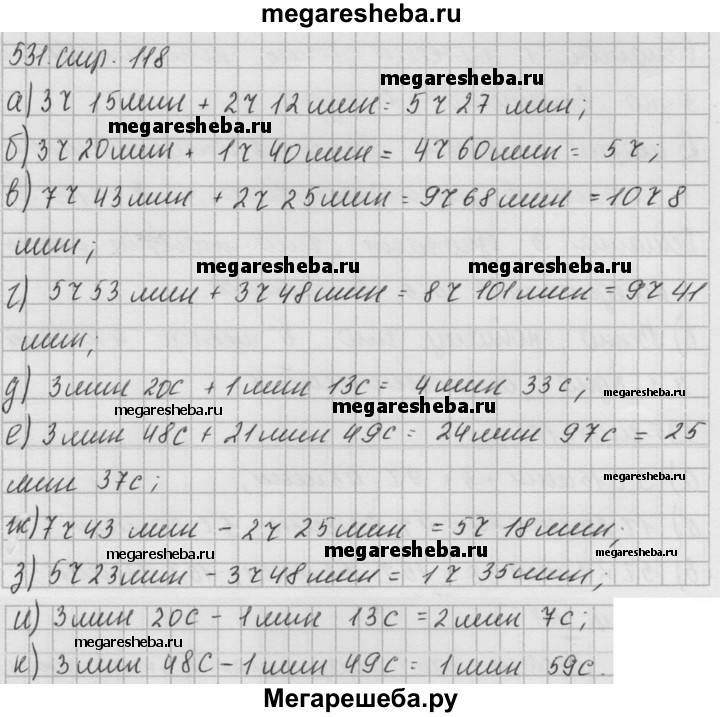 megaresheba.ru
531. стр. 118
megaresheba.ru
а) 3ч 15мин + 2ч 12мин = 5ч 27 мин;
megaresheba.ru
б) 3ч 20мин + 1ч 40мин = 4ч 60мин = 5ч;
в) 7ч 43мин + 2ч 25мин = 9ч 68мин = 10ч 8
мин;
megaresheba.ru megaresheba.ru
г) 5ч 53 мин + 3ч 48мин = 8ч 101мин = 9ч 41
мин;
д) 3мин 20с + 1мин 13с = 4мин 33с;
megaresheba.ru megaresheba.ru megaresheba.ru
е) 3мин 48с + 21мин 49с = 24мин 97с = 25
мин 37с;
megaresheba.ru megaresheba.ru
ж) 7ч 43 мин - 2ч 25мин = 5ч 18мин;
megaresheba.ru megaresheba.ru megaresheba.ru
з) 5ч 23мин - 3ч 48мин = 1ч 35мин;
и) 3мин 20с - 1мин 13с = 2мин 7с;
megaresheba.ru megaresheba.ru
к) 3мин 48с - 1мин 49с = 1мин 59с.
Мегарешеба.ру